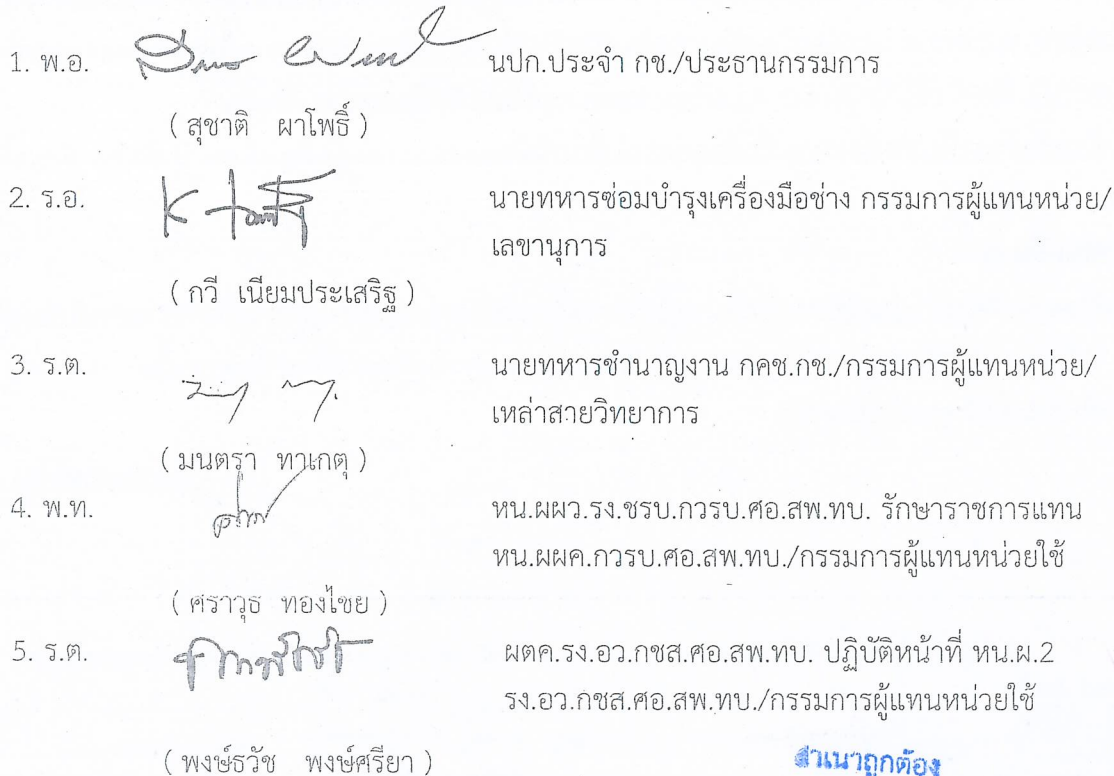 1. พ.อ. นปก.ประจำ กช./ประธานกรรมการ
( สุชาติ ผาโพธิ์ )
2. ร.อ. นายทหารซ่อมบำรุงเครื่องมือช่าง กรรมการผู้แทนหน่วย/
เลขานุการ
( กวี เนียมประเสริฐ )
3. ร.ต. นายทหารชำนาญงาน กคช.กช./กรรมการผู้แทนหน่วย/
เหล่าสายวิทยาการ
( มนตรา ทาเกตุ )
4. พ.ท. หน.ผผว.รง.ชรบ.กวรบ.ศอ.สพ.ทบ. รักษาราชการแทน
หน.ผผค.กวรบ.ศอ.สพ.ทบ./กรรมการผู้แทนหน่วยใช้
( ศราวุธ ทองไชย )
5. ร.ต. ผตค.รง.อว.กซส.ศอ.สพ.ทบ. ปฏิบัติหน้าที่ หน.ผ.2
รง.อว.กซส.ศอ.สพ.ทบ./กรรมการผู้แทนหน่วยใช้
( พงษ์ธวัช พงษ์ศรียา )
สำเนาถูกต้อง